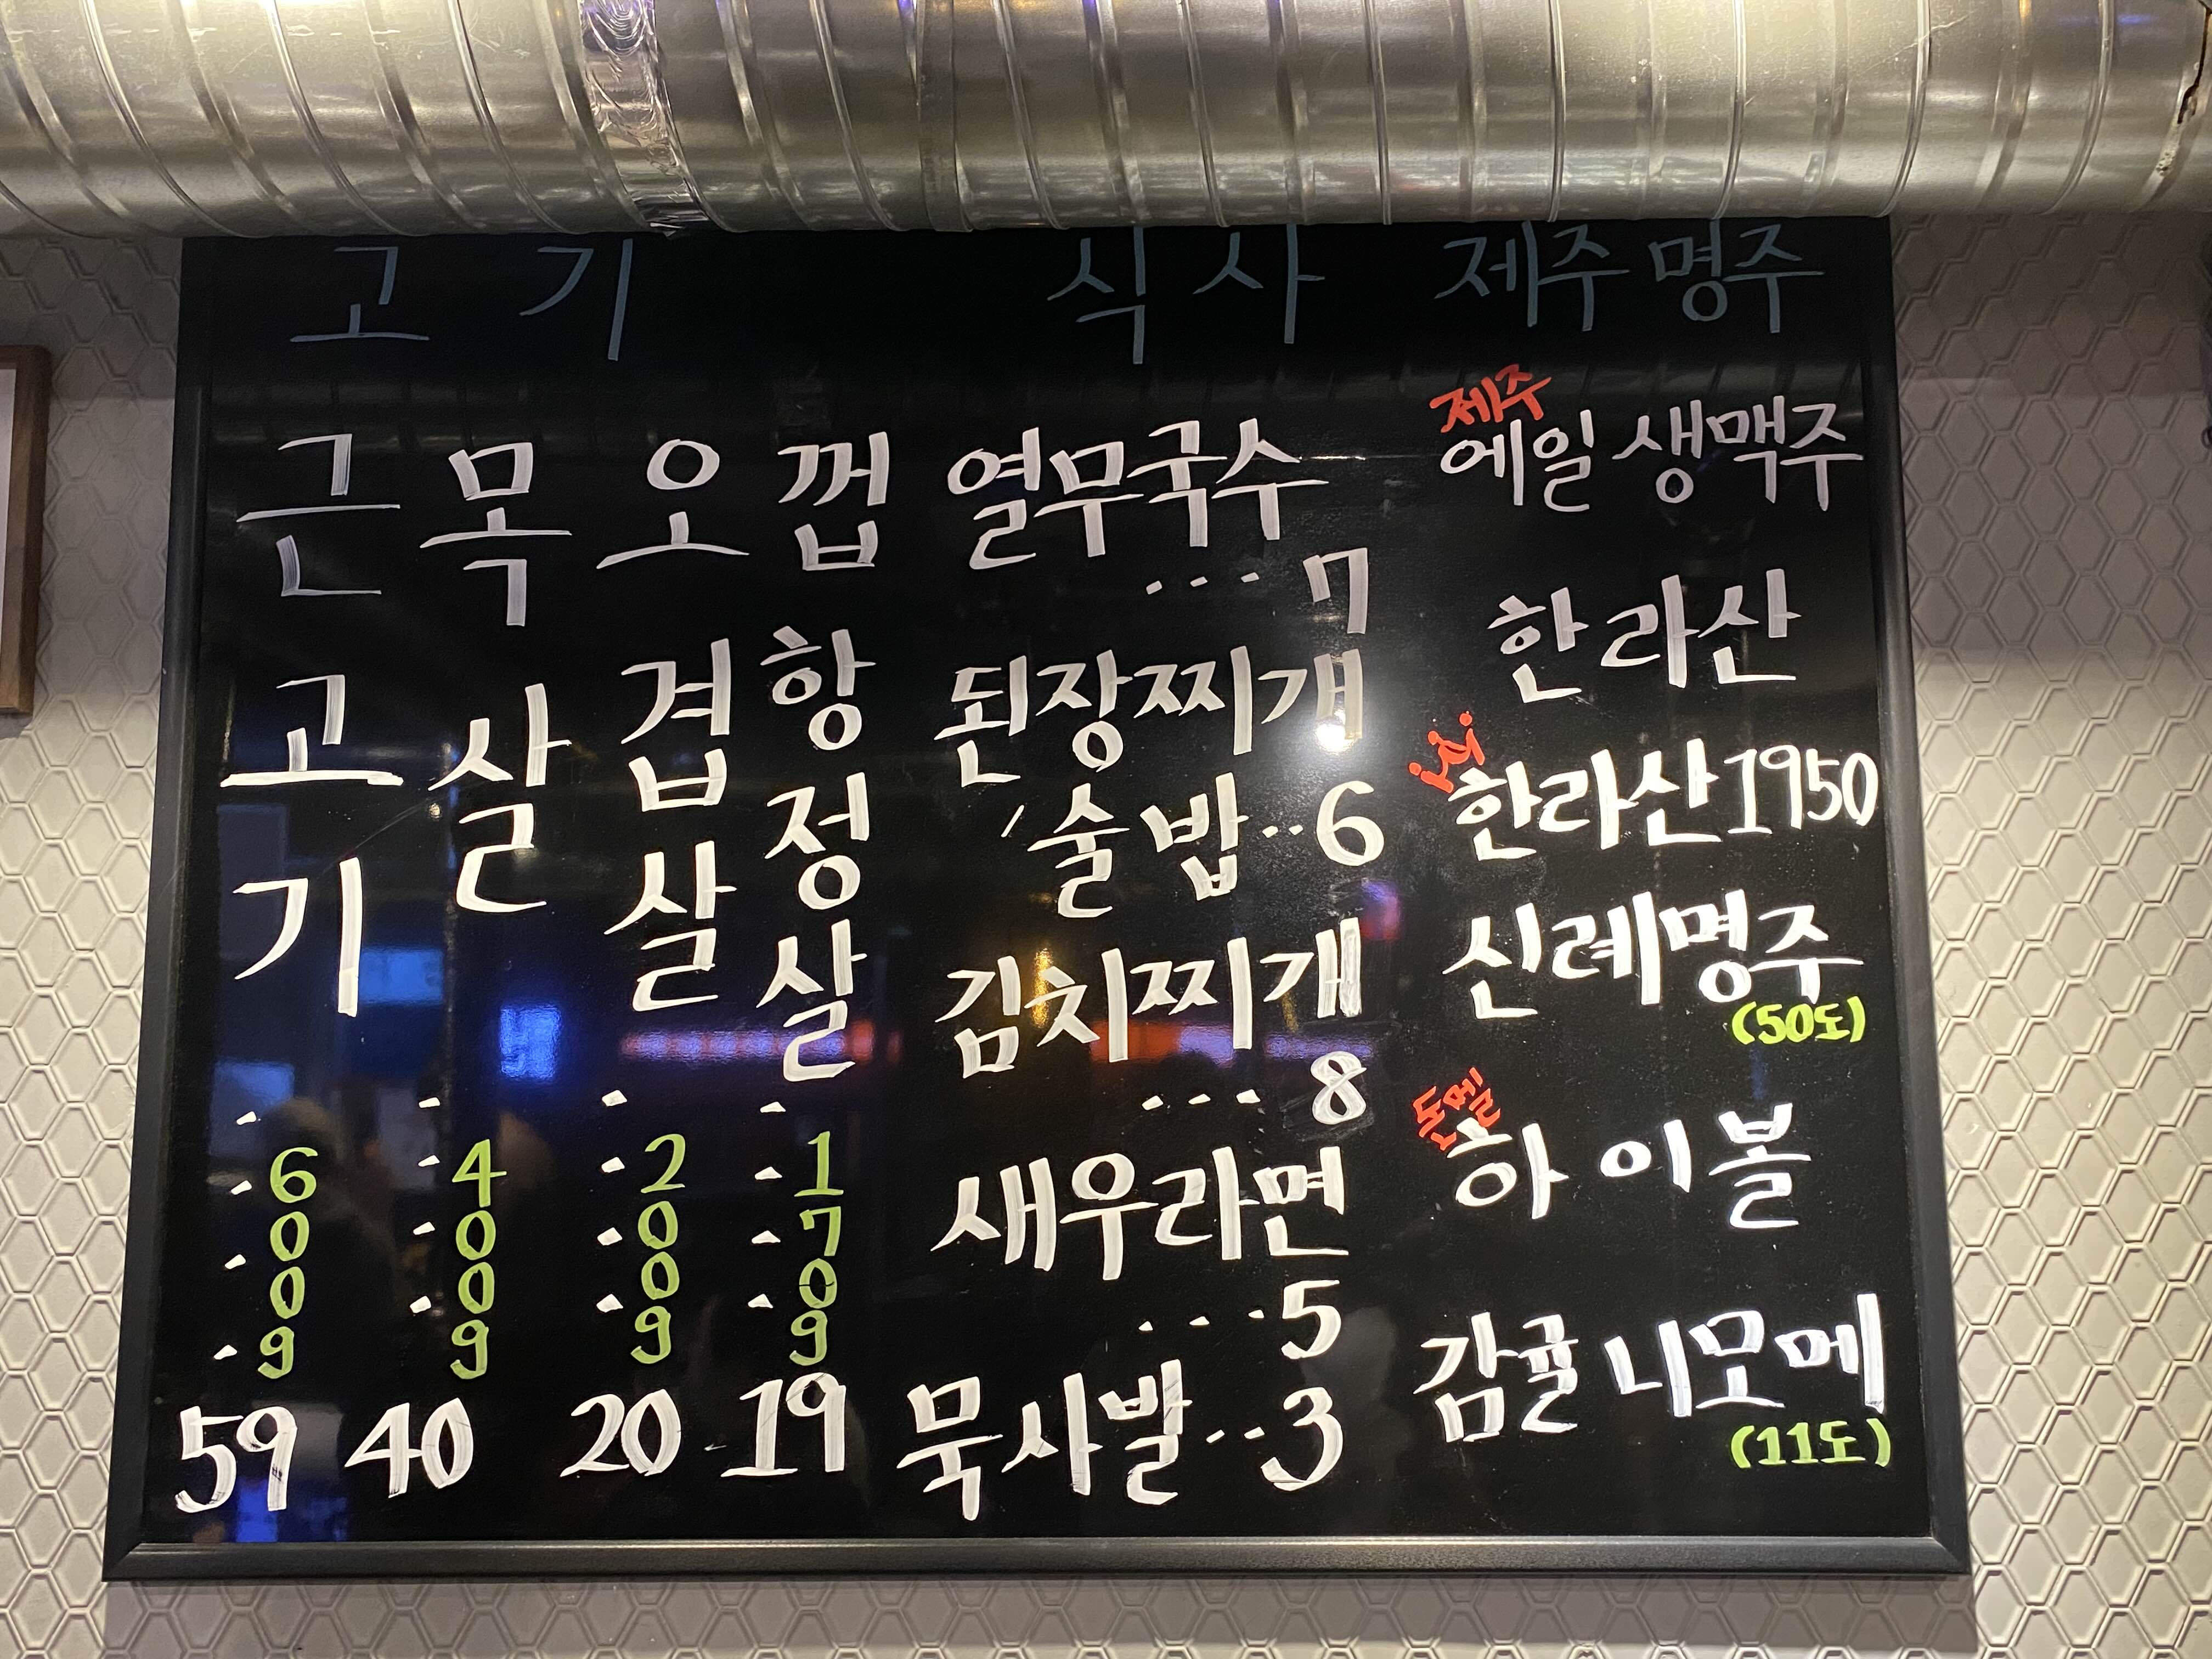 고기
근고기 600g 59
목살 400g 40
오겹살 200g 20
껍항정살 170g 19
식사
열무국수
...7
된장찌개
술밥..6
김치찌개
...8
새우라면
...5
묵사발..3
제주명주
제주
에일 생맥주
한라산
한라산1950
신례명주
(50도)
돈멜
하이볼
감귤 니모메
(11도)